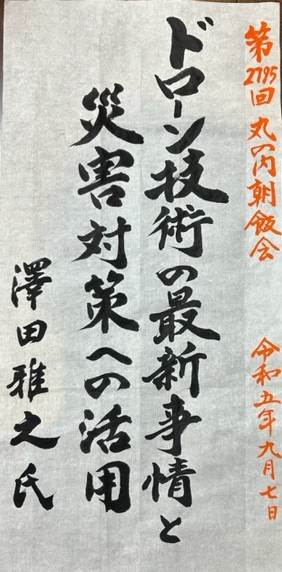 第2795回 丸の内朝飯会 令和五年九月七日
ドローン技術の最新事情と
災害対策への活用
澤田雅之氏